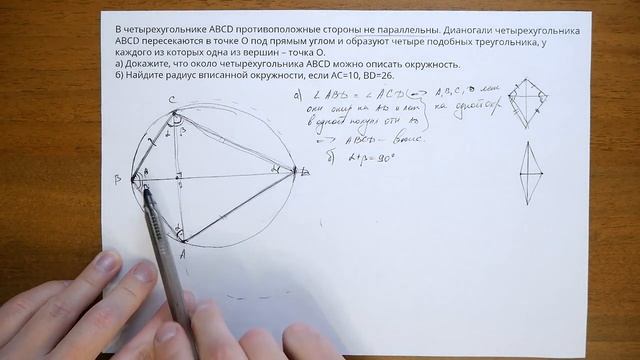 В четырехугольнике ABCD противоположные стороны не параллельны. Дианогали четырехугольника
ABCD пересекаются в точке О под прямым углом и образуют четыре подобных треугольника, у
каждого из которых одна из вершин – точка О.
а) Докажите, что около четырехугольника ABCD можно описать окружность.
б) Найдите радиус вписанной окружности, если AC=10, BD=26.
а) ∠ABD = ∠ACD A, B, C, D леж
они опир на AD и леж на одной окр
в одной полупл отн AD
⇒ ABCD – впис.
б) α+β=90°
C
α β
B
β
α
D
α
A